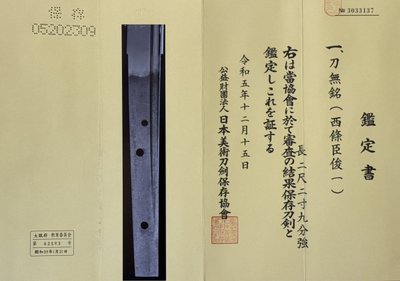 № 3033137
鑑定書
一、刀無銘(西條臣俊一)
長二尺二寸九分強
右は當協會に於て審査の結果保存刀剣と
鑑定しこれを証する
令和五年十二月十五日
公益財團法人日本美術刀劍保存協會
保存
05202309
教育委員会
第
号